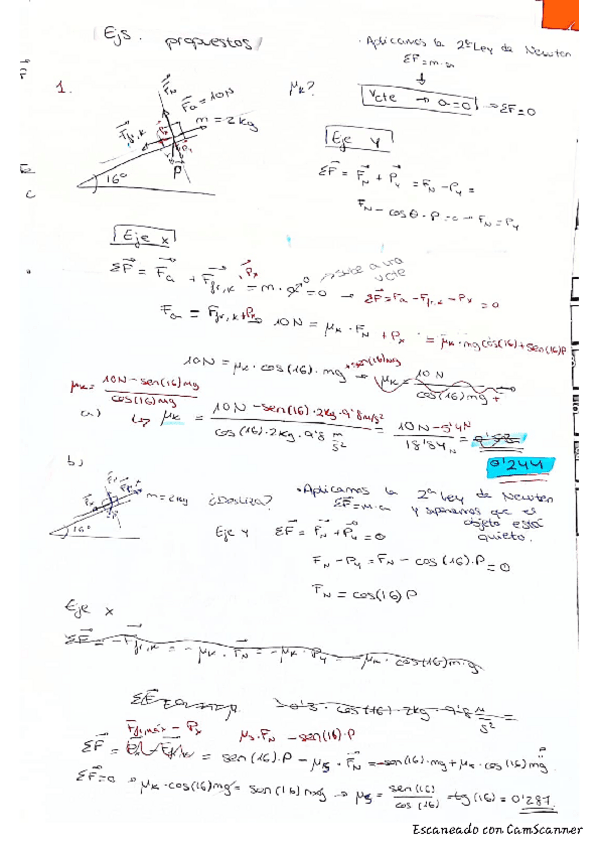 Ejs. propuestos
· Aplicamos la 2ª Ley de Newton
ΣF = m·a
↓
Vcte → a=0 → ΣF=0
1.
μk?
F⃗N
F⃗a = 10N
m = 2kg
F⃗fr,k
P⃗
16°
Eje y
ΣF⃗ = F⃗N + P⃗y = FN - Py =
FN - cosθ · P = 0 → FN = Py
Eje x
ΣF⃗ = F⃗a + F⃗fr,k + P⃗x = m·a = 0 → ΣF⃗ = Fa - Ffr,k - Px = 0
sube a una vcte
Fa = Ffr,k + Px → 10N = μk · FN + Px = μk·mg cos(16) + sen(16)P
10N = μk · cos(16) · mg + sen(16)mg → μk = 10N / cos(16)mg +
μk = 10N - sen(16)mg / cos(16)mg
a) ↳ μk = 10N - sen(16)·2kg·9'8 m/s² / cos(16)·2kg·9'8 m/s² = 10N - 5'4N / 18'84N =
0'244
b)
m = 2kg
16°
¿Desliza?
· Aplicamos la 2ª Ley de Newton
ΣF⃗ = m·a y suponemos que el objeto está quieto.
Eje y ΣF⃗ = F⃗N + P⃗y = 0
FN - Py = FN - cos(16)·P = 0
FN = cos(16) P
Eje x
ΣF⃗ = -F⃗fr,k = -μk · F⃗N = -μk · Py = -μk · cos(16) m·g
0'3 · cos(16) · 2kg · 9'8 m/s² =
Ffr,máx - Px μs·FN - sen(16)·P
ΣF⃗ = = sen(16)·P - μs · F⃗N = -sen(16)·mg + μs · cos(16)mg
ΣF⃗=0 → μk · cos(16)mg = sen(16) mg → μs = sen(16) / cos(16) = tg(16) = 0'287
Escaneado con CamScanner